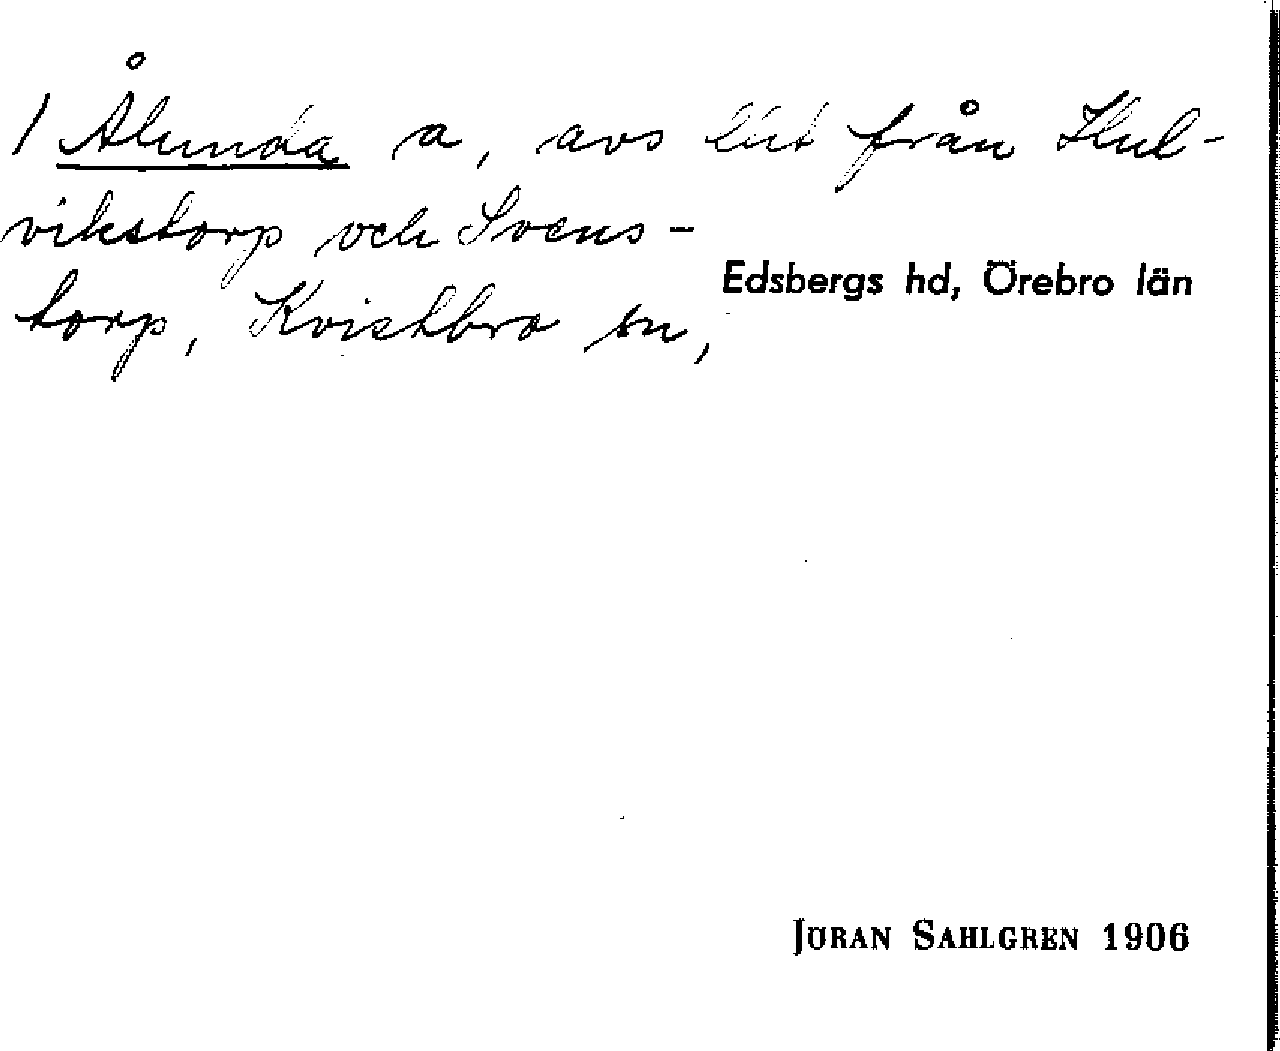 / Ålunda a, avs litt från Hul-
vikstorp och Svens-
torp, Kvistbro sn,
Edsbergs hd, Örebro län
JÖRAN SAHLGREN 1906